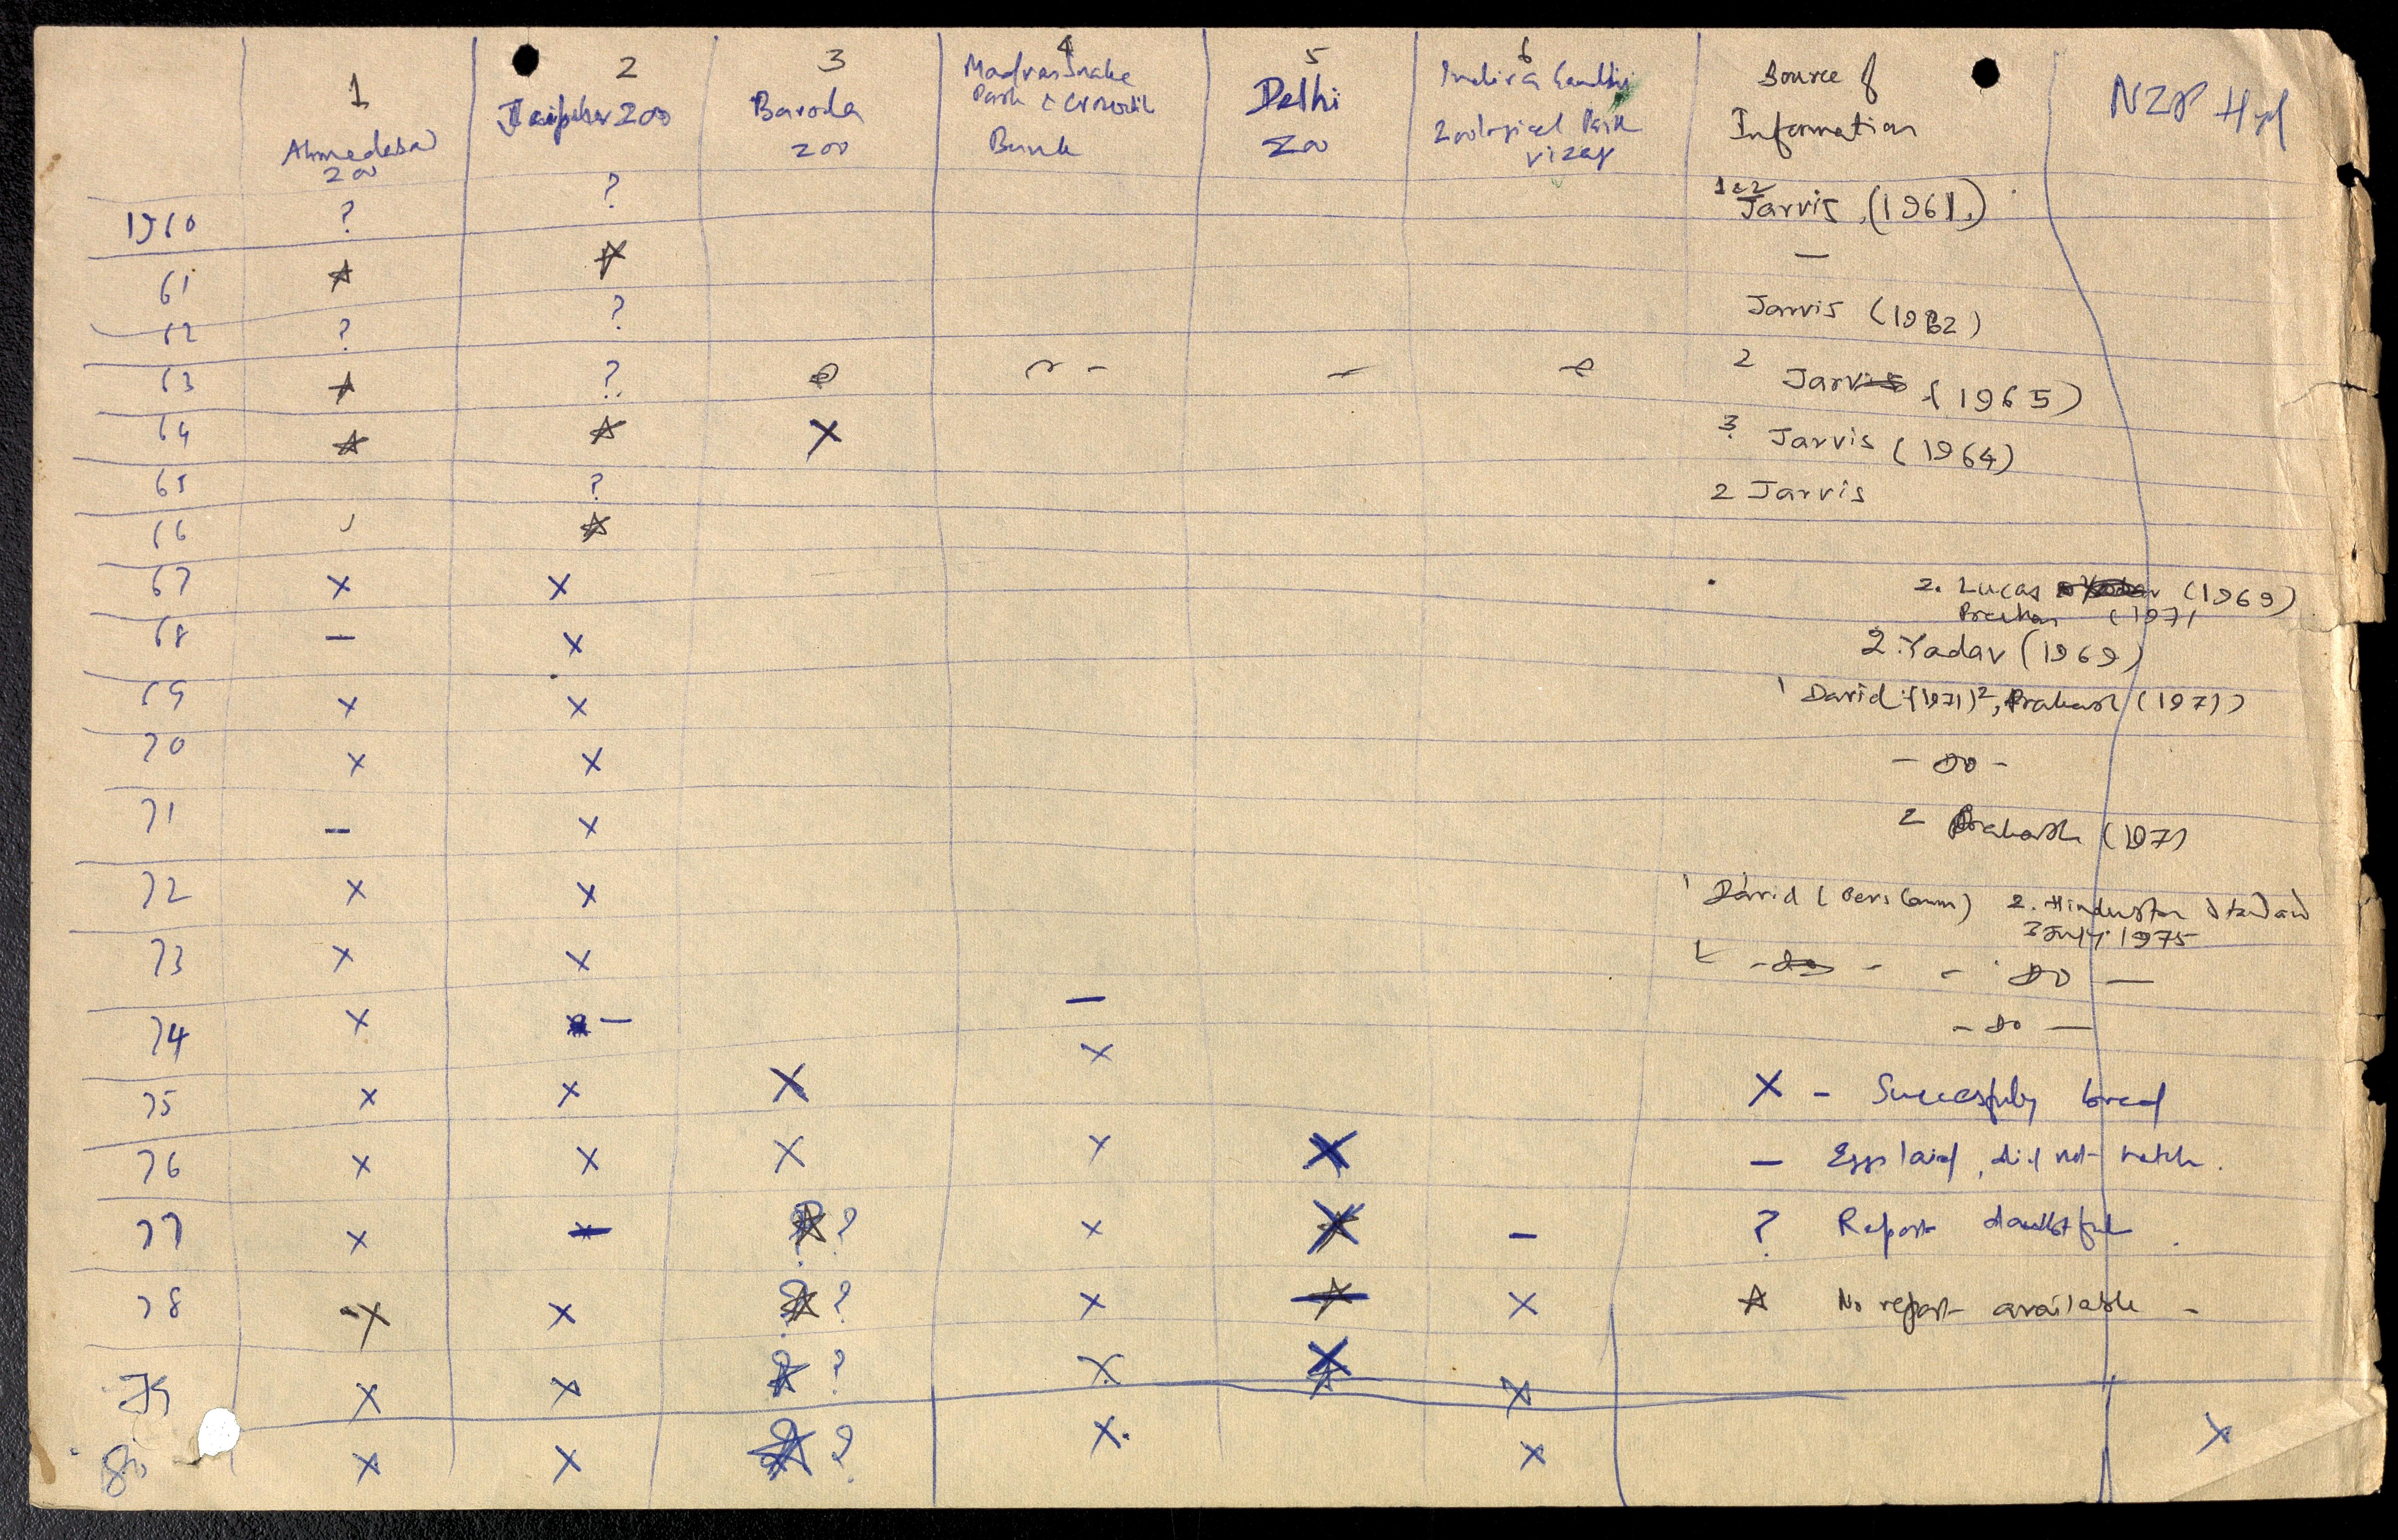 1 2 3 4 5 6 Source of Information NZP Hyd
Ahmedabad Zoo Jaipur Zoo Baroda Zoo Madras Snake Park & Crocodile Bank Delhi Zoo Indira Gandhi Zoological Park Vizag
1960 ? ? 1&2 Jarvis (1961)
61 ☆ ☆ —
62 ? ? Jarvis (1962)
63 ☆ ? – – 2 Jarvis (1965)
64 ☆ ☆ X 3 Jarvis (1964)
65 ? 2 Jarvis
66 ☆
67 X X 2. Lucas (1969)
Prakash (1971
68 — X 2. Yadav (1969)
69 X X 1 David (1971) 2, Prakash (1971)
70 X X – Do –
71 — X 2 Prakash (1971
72 X X 1 David (Pers Comm) 2. Hindustan Standard
3 July 1975
73 X X – Do – – Do —
74 X — — – Do —
75 X X X X X – Succesfuly bred
76 X X X X X — Eggs laid, did not hatch.
77 X — ☆ ? X X — ? Report doubtful
78 X X ☆ ? X — X ☆ No report available –
79 X X ☆ ? X X X
80 X X ☆ ? X. X X